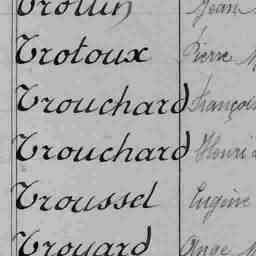 Trotin Jean
Trotoux Pierre
Trouchard François
Trouchard Henri
Troussel Eugène
Trouard Ange